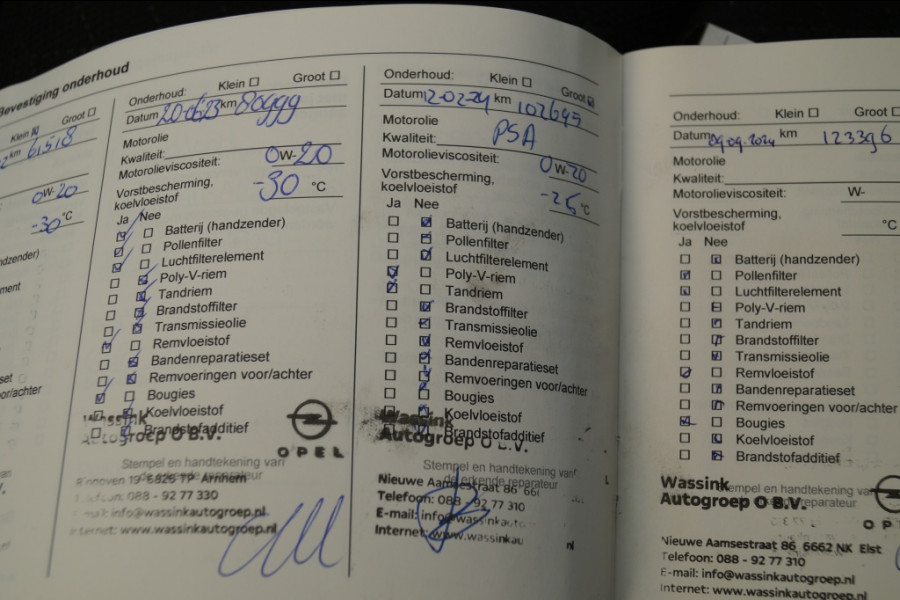 Bevestiging onderhoud
Klein ☒ Groot ☐
km 61518
0W-20
-30 °C
dzender)
ment
set
or/achter
Onderhoud: Klein ☐ Groot ☐
Datum 20-06-23 km 80999
Motorolie
Kwaliteit:
Motorolieviscositeit: 0W-20
Vorstbescherming,
koelvloeistof -30 °C
Ja Nee
☑ ☐ Batterij (handzender)
☑ ☐ Pollenfilter
☑ ☐ Luchtfilterelement
☐ ☑ Poly-V-riem
☐ ☑ Tandriem
☐ ☑ Brandstoffilter
☐ ☑ Transmissieolie
☑ ☐ Remvloeistof
☐ ☑ Bandenreparatieset
☐ ☑ Remvoeringen voor/achter
☑ ☐ Bougies
☐ ☑ Koelvloeistof
☐ ☑ Brandstofadditief
Wassink
Autogroep B.V.
OPEL
Stempel en handtekening van
erkende reparateur
19 6826 TP Arnhem
Telefoon: 088 - 92 77 330
E-mail: info@wassinkautogroep.nl
Internet: www.wassinkautogroep.nl
Onderhoud: Klein ☐ Groot ☒
Datum 12-02-24 km 102695
Motorolie
Kwaliteit: PSA
Motorolieviscositeit: 0W-20
Vorstbescherming,
koelvloeistof -25 °C
Ja Nee
☐ ☑ Batterij (handzender)
☐ ☑ Pollenfilter
☐ ☑ Luchtfilterelement
☑ ☐ Poly-V-riem
☑ ☐ Tandriem
☐ ☑ Brandstoffilter
☐ ☑ Transmissieolie
☐ ☑ Remvloeistof
☐ ☑ Bandenreparatieset
☐ ☑ Remvoeringen voor/achter
☐ ☑ Bougies
☐ ☑ Koelvloeistof
☐ ☑ Brandstofadditief
Wassink
Autogroep B.V.
Stempel en handtekening van
erkende reparateur
Nieuwe Aamsestraat 86
Telefoon: 088 - 92 77 310
E-mail: info@wassinkauto
Internet: www.wassinkau nl
Onderhoud: Klein ☐ Groot ☐
Datum 09.09.2024 km 123396
Motorolie
Kwaliteit:
Motorolieviscositeit: W-
Vorstbescherming,
koelvloeistof °C
Ja Nee
☐ ☑ Batterij (handzender)
☑ ☐ Pollenfilter
☑ ☐ Luchtfilterelement
☐ ☑ Poly-V-riem
☐ ☑ Tandriem
☐ ☑ Brandstoffilter
☐ ☑ Transmissieolie
☑ ☐ Remvloeistof
☐ ☑ Bandenreparatieset
☐ ☑ Remvoeringen voor/achter
☑ ☐ Bougies
☐ ☑ Koelvloeistof
☐ ☑ Brandstofadditief
Wassink
Autogroep B.V.
OP
Stempel en handtekening van
reparateur
Nieuwe Aamsestraat 86 6662 NK Elst
Telefoon: 088 - 92 77 310
E-mail: info@wassinkautogroep.nl
Internet: www.wassinkautogroep.nl